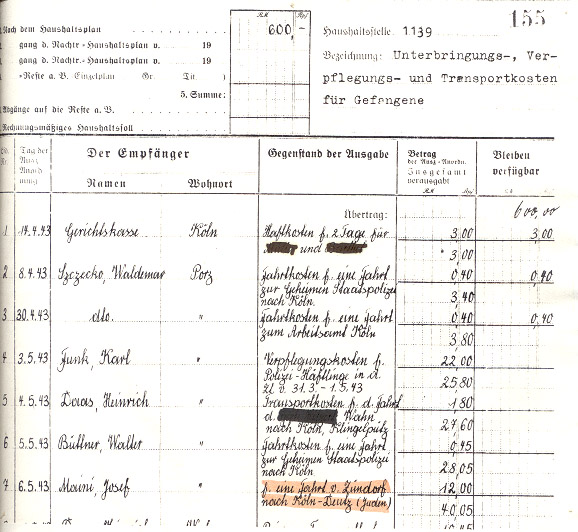 155
Nach dem Haushaltsplan
RM Rpf
600,-
gang d. Nachtr.-Haushaltsplan v. 19
gang d. Nachtr.-Haushaltsplan v. 19
-Reste a. B. -Einzelplan Gr. Tit.
5. Summe:
Abgänge auf die Reste a. B.
Rechnungsmäßiges Haushaltssoll
Haushaltsstelle: 1139
Bezeichnung: Unterbringungs-, Ver-
pflegungs- und Transportkosten
für Gefangene
Nr.
Tag der
Ausz.
Anord
nung
Der Empfänger
Namen
Wohnort
Gegenstand der Ausgabe
Betrag
der Ausz.-Anordn.
Insgesamt
verausgabt
RM Rpf
Bleiben
verfügbar
Übertrag:
600,00
1 14.4.43 Gerichtskasse Köln Haftkosten f. 2 Tage für 3,00 3,00
und
3,00
2 8.4.43 Szczecko, Waldemar Porz Fahrtkosten f. eine Fahrt 0,40 0,40
zur Geheimen Staatspolizei
nach Köln 3,40
3 30.4.43 dto. " Fahrtkosten f. eine Fahrt 0,40 0,40
zum Arbeitsamt Köln 3,80
4 3.5.43 Funk, Karl " Verpflegungskosten f. 22,00
Polizei-Häftlinge in d.
Zt. v. 31.3. - 1.5.43 25,80
5 4.5.43 Heinrich " Transportkosten f. d. Fahrt 1,80
d. Wahn
nach Köln, Klingelpütz 27,60
6 5.5.43 Büttner, Walter " Fahrtkosten f. eine Fahrt 0,45
zur Geheimen Staatspolizei
nach Köln 28,05
7 6.5.43 Josef " f. eine Fahrt v. Zündorf 12,00
nach Köln-Deutz (Juden)
40,05